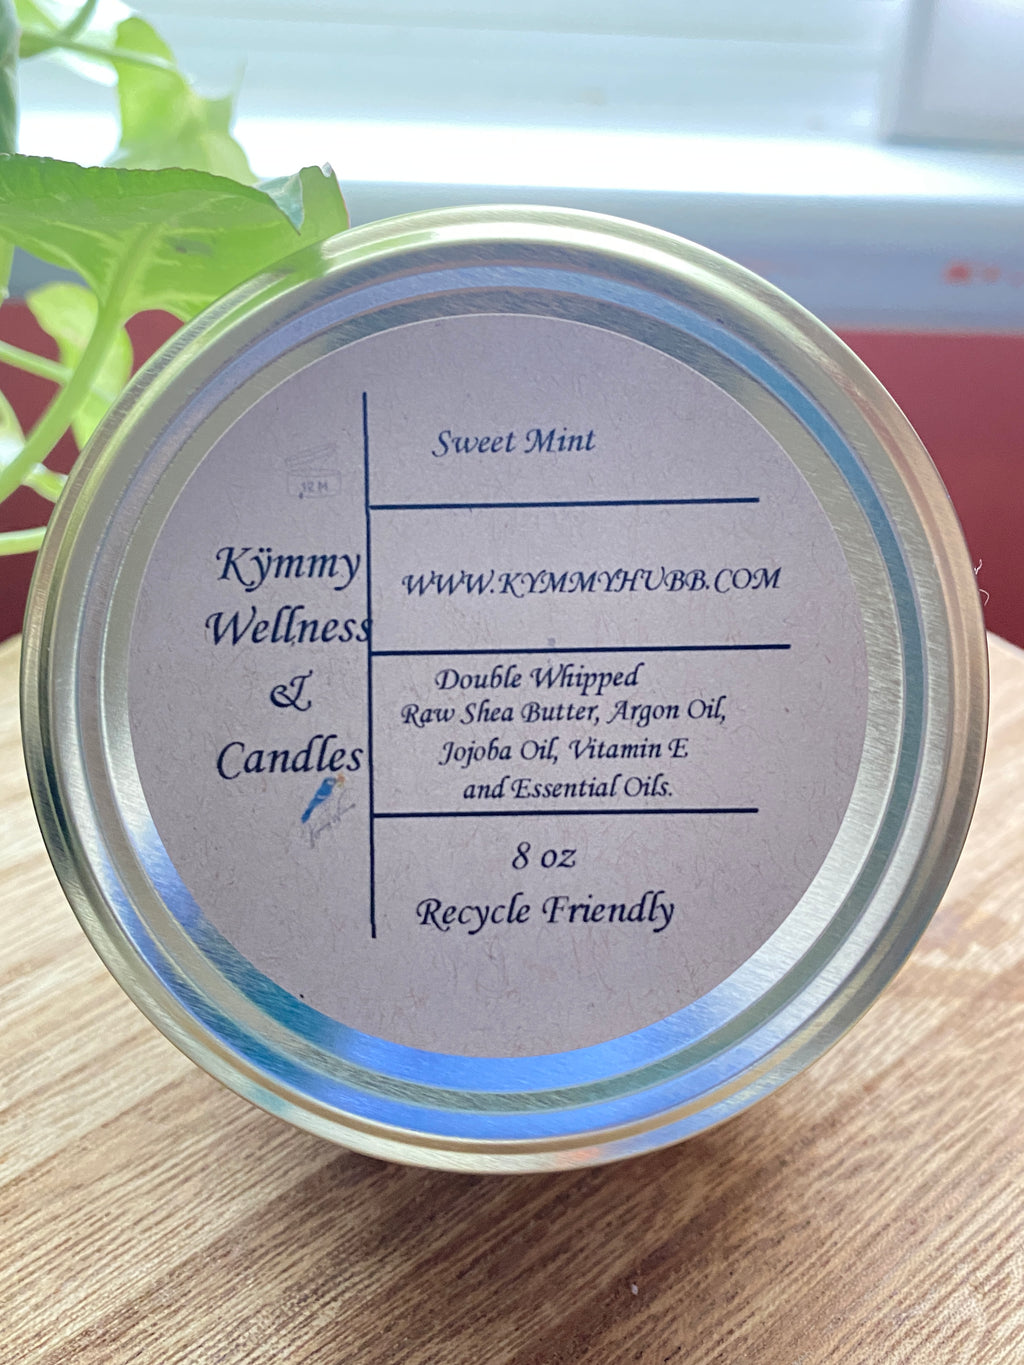 12 M
Kÿmmy
Wellness
&
Candles
Sweet Mint
WWW.KYMMYHUBB.COM
Double Whipped
Raw Shea Butter, Argon Oil,
Jojoba Oil, Vitamin E
and Essential Oils.
8 oz
Recycle Friendly